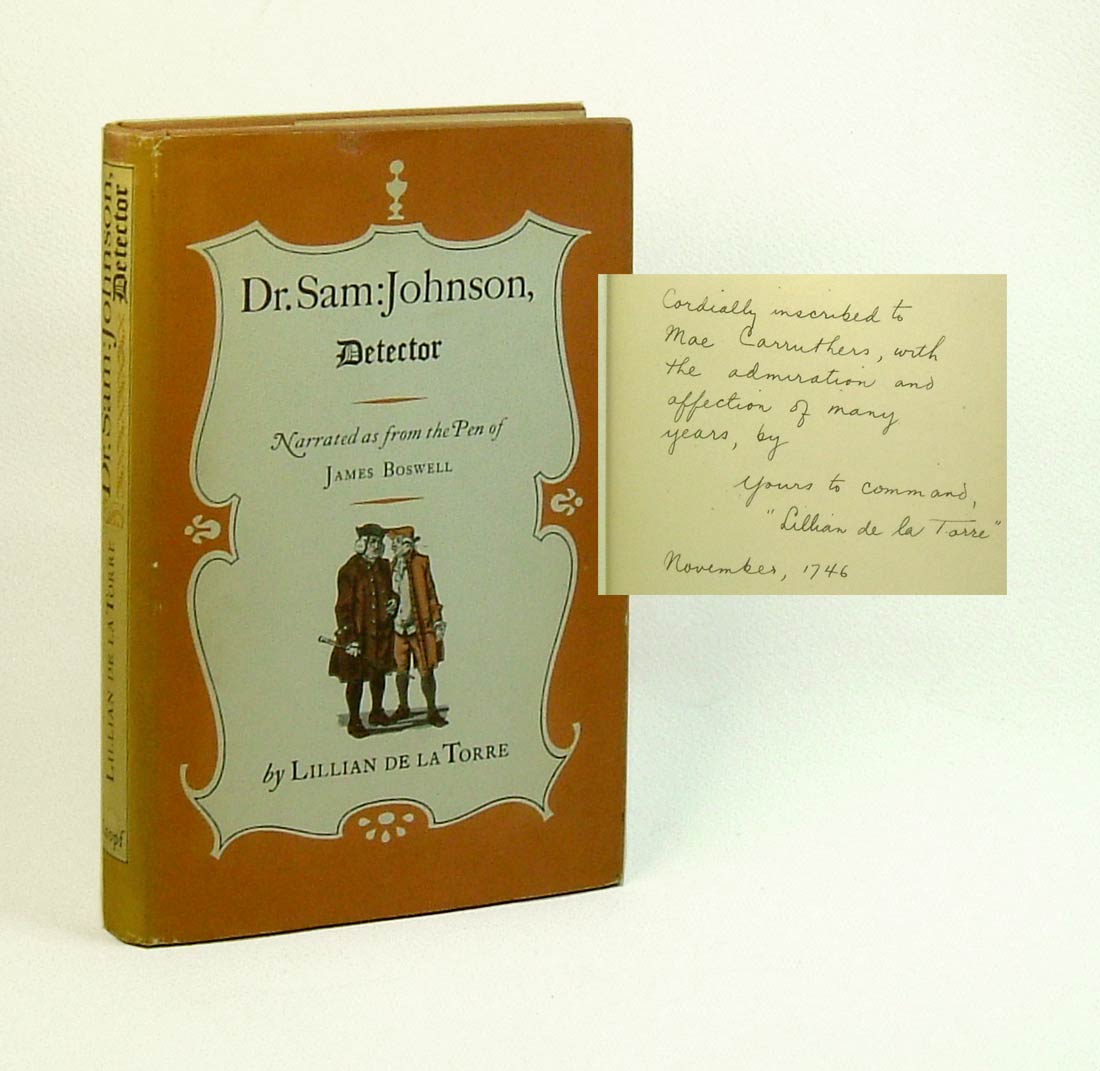 Dr. Sam: Johnson,
Detector
Narrated as from the Pen of
JAMES BOSWELL
by LILLIAN DE LA TORRE
Dr. Sam: Johnson,
Detector
LILLIAN DE LA TORRE
Cordially inscribed to
Mae Carruthers, with
the admiration and
affection of many
years, by
Yours to command,
"Lillian de la Torre"
November, 1746